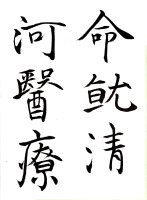 命魷清
河醫療